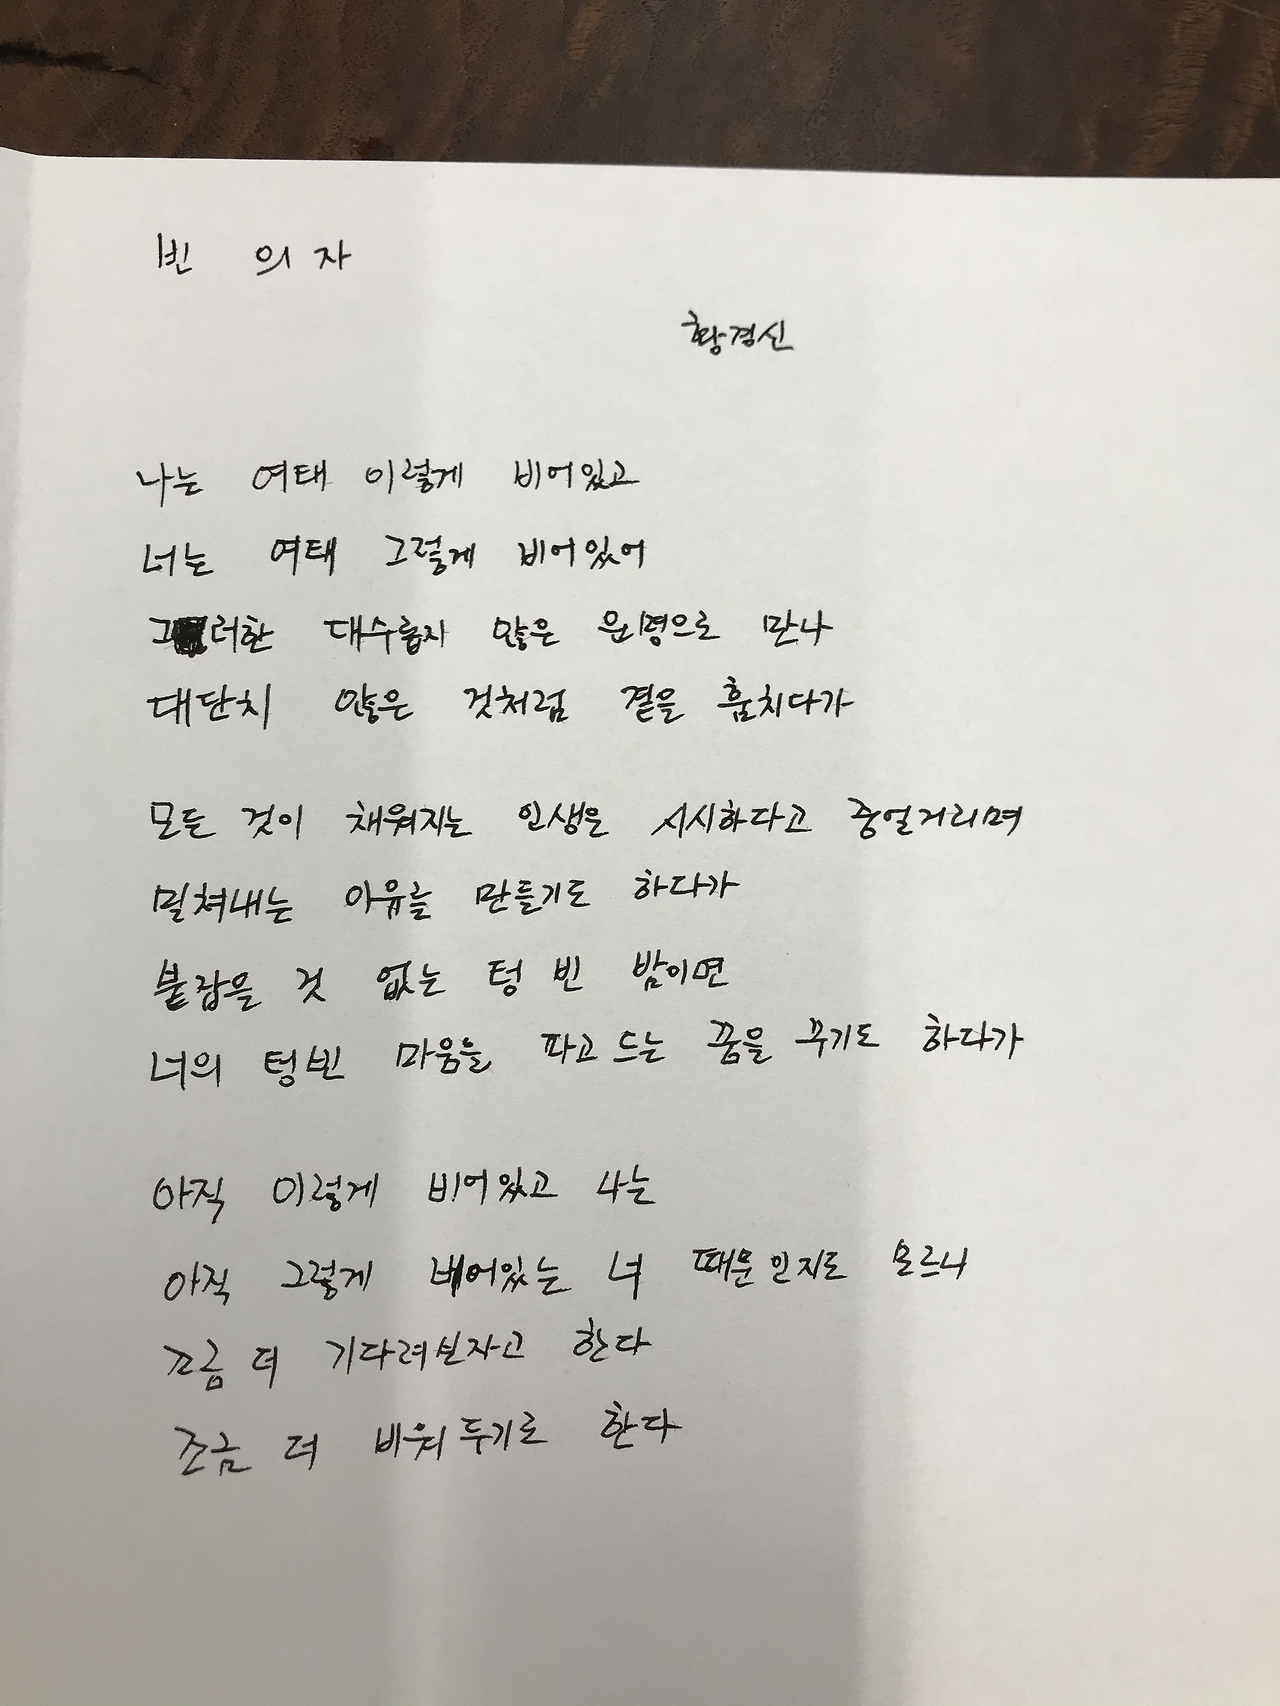 빈 의자
황경신
나는 여태 이렇게 비어있고
너는 여태 그렇게 비어있어
그러한 대수롭지 않은 운명으로 만나
대단치 않은 것처럼 곁을 훔치다가
모든 것이 채워지는 인생은 시시하다고 중얼거리며
밀쳐내는 이유를 만들기도 하다가
붙잡을 것 없는 텅 빈 밤이면
너의 텅빈 마음을 파고드는 꿈을 꾸기도 하다가
아직 이렇게 비어있고 나는
아직 그렇게 비어있는 너 때문인지도 모르니
조금 더 기다려보자고 한다
조금 더 비워두기로 한다